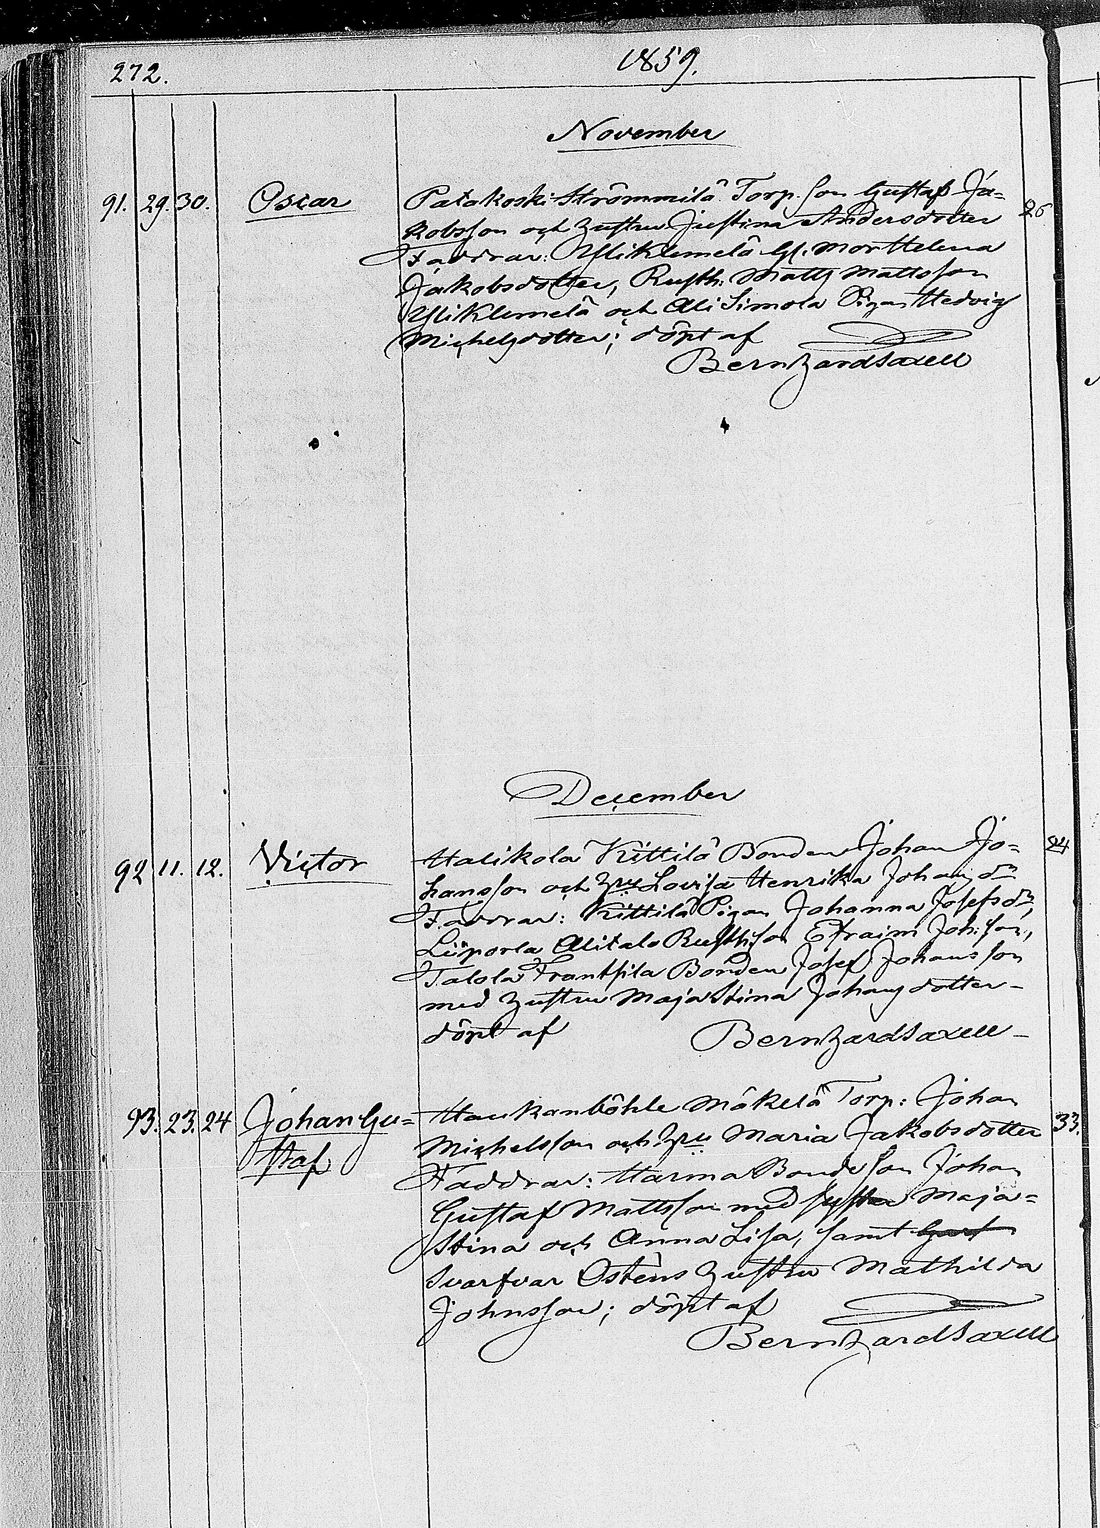 272.
1859.
November
91. 29. 30. Oscar Patakoski Strömmilä Torp. Son Gustaf Ja= 26
kobsson och hustru Justina Andersdotter
Faddrar: Yliklemelä Gl. mor Helena
Jakobsdotter, Rusth. Matts Mattsson
Yliklemelä och Ali Simola Pigan Hedvig
Michelsdotter; döpt af
Bernhard Saxell
December
92 11. 12. Victor Halikola Kittilä Bonden Johan Jo= 24
hansson och hru Lovisa Henrika Johansdr
Faddrar: Kittilä Pigan Johanna Josefsdr,
Liiporla Alitalo Rusth. Son Efraim Joh. Son,
Talola Franttila Bonden Josef Johansson
med hustru Maja Stina Johansdotter-
döpt af Bernhard Saxell-
93. 23. 24 Johan Gu= Haukanböhle Mäkelä Torp: Johan 33.
staf Michelsson och hru Maria Jakobsdotter
Faddrar: Harma Bonde Son Johan
Gustaf Mattsson med Maja=
Stina och Anna Lisa, samt
svarfvar Östens hustru Mathilda
Johnsson; döpt af
Bernhard Saxell